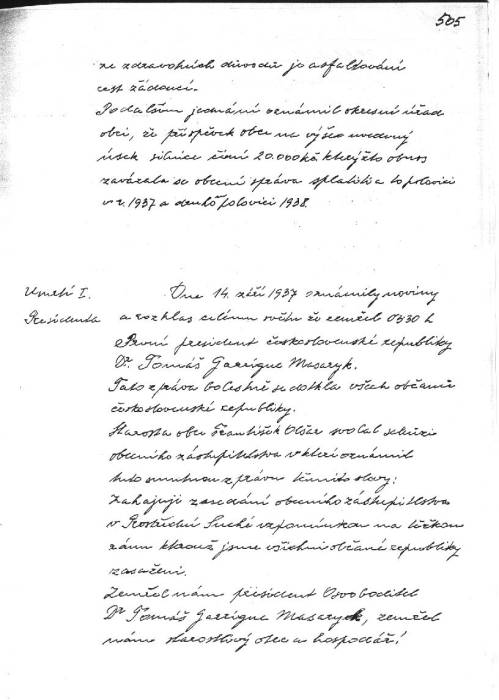 505
ze zdravotních důvodů je asfaltování
cest žádoucí.
Po dalším jednání oznámil okresní úřad
obci, že příspěvek obce na výše uvedený
úsek silnice činí 20.000 kč kterýžto obnos
zavázala se obecní správa splatiti a to polovici
v r. 1937 a druhou polovici 1938.
Úmrtí I. Dne 14. září 1937 oznámily noviny
Presidenta a rozhlas celému světu že zemřel 0330 h
První president československé republiky
Dr. Tomáš Garrigue Masaryk.
Tato zpráva bolestně se dotkla všech občanů
československé republiky.
Starosta obce František Olšar svolal schůzi
obecního zastupitelstva v které oznámil
tuto smutnou zprávu těmito slovy:
Zahajuji zasedání obecního zastupitelstva
v Prostřední Suché vzpomínkou na těžkou
ránu kterouž jsme všichni občané republiky
zasaženi.
Zemřel nám president Osvoboditel
Dr Tomáš Garrigue Masaryk, zemřel
nám starostlivý otec a hospodář!